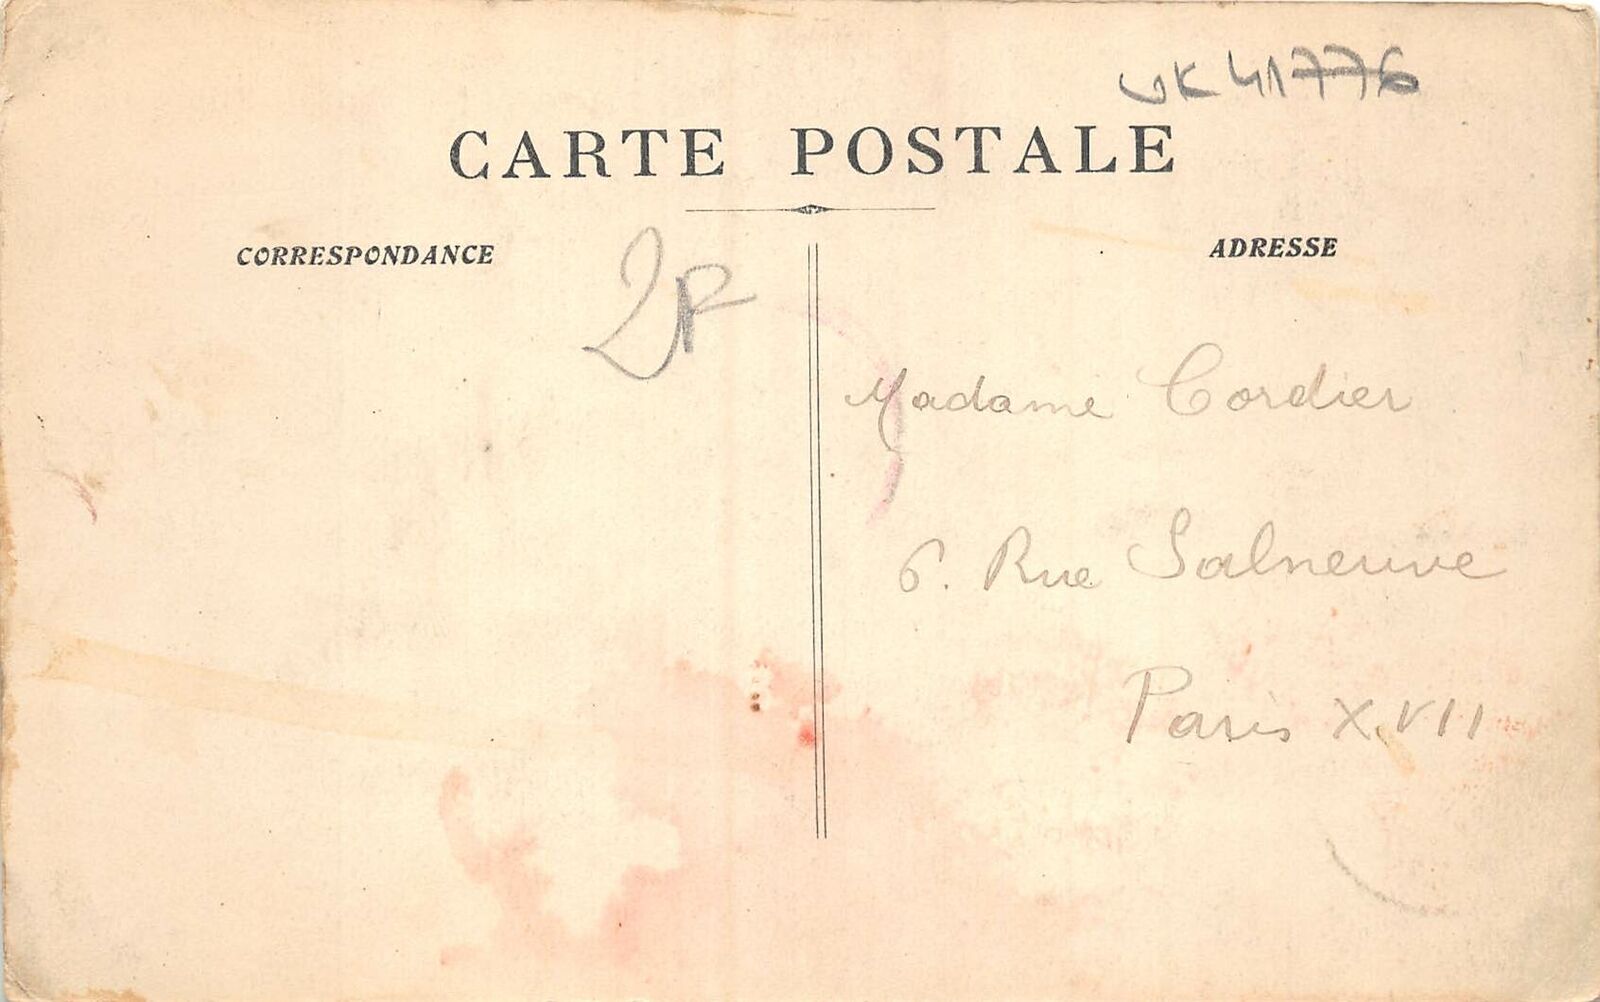 VK41776
CARTE POSTALE
CORRESPONDANCE
ADRESSE
2F
Madame Cordier
6. Rue Salneuve
Paris XVII